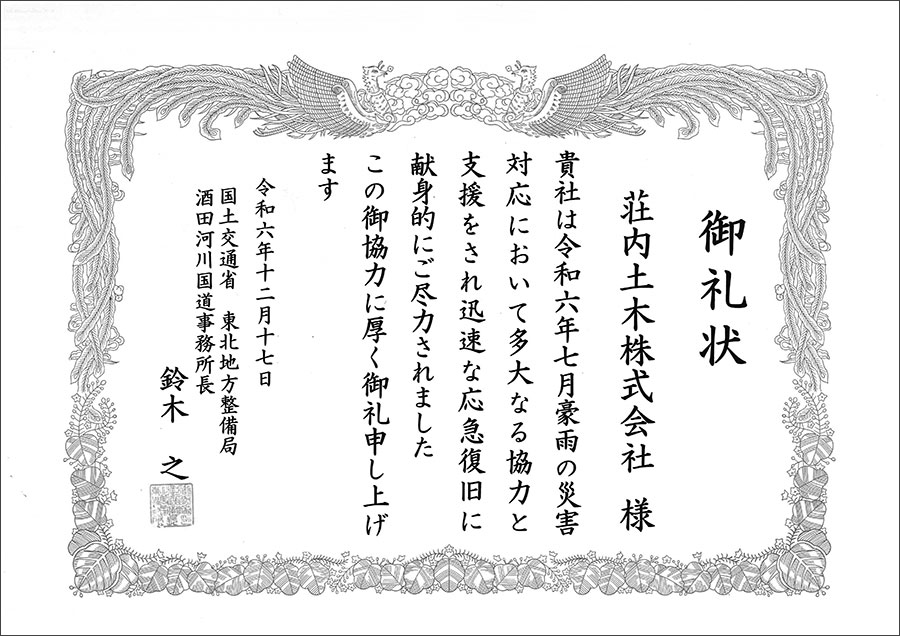 御礼状
荘内土木株式会社 様
貴社は令和六年七月豪雨の災害
対応において多大なる協力と
支援をされ迅速な応急復旧に
献身的にご尽力されました
この御協力に厚く御礼申し上げ
ます
令和六年十二月十七日
国土交通省 東北地方整備局
酒田河川国道事務所長
鈴木 之